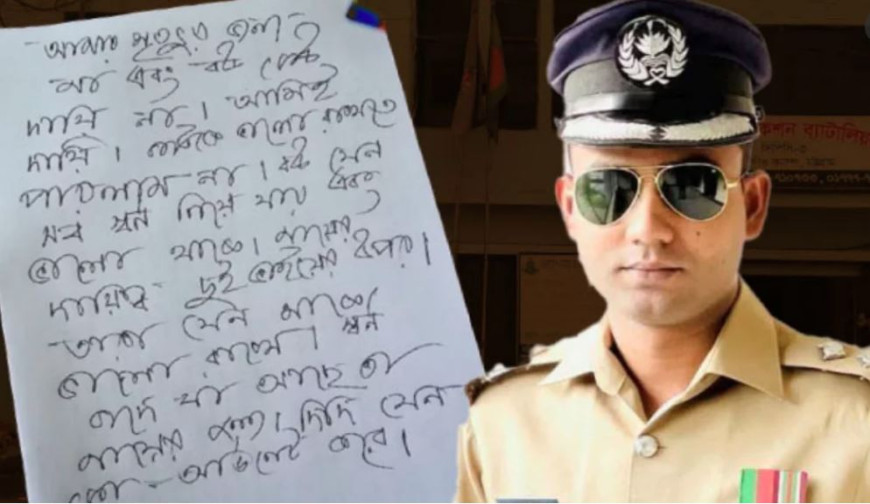 আমার মৃত্যুর জন্য
মা এবং বউ কেউ
দায়ী না। আমিই
দায়ী। কাউকে ভালো রাখতে
পারলাম না। বউ যেন
সব স্বর্ণ নিয়ে যায় এবং
ভালো থাকে। মায়ের
দায়িত্ব দুই ভাইয়ের উপর।
তারা যেন মাকে
ভালো রাখে। স্বর্ণ
বাদে যা আছে তা
মায়ের জন্য। দিদি যেন
কো-অর্ডিনেট করে।
কশন ব্যাটালিয়